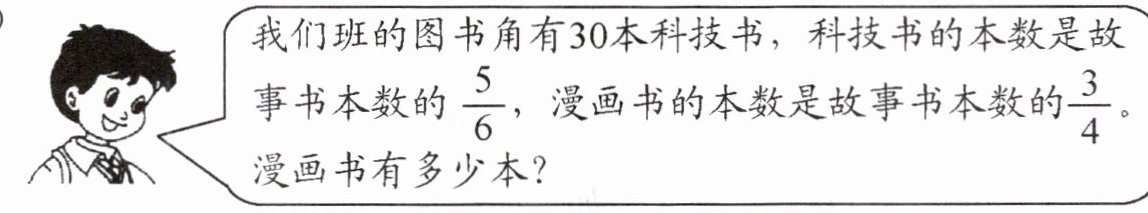 我们班的图书角有30本科技书，科技书的本数是故
事书本数的 5/6，漫画书的本数是故事书本数的3/4。
漫画书有多少本？